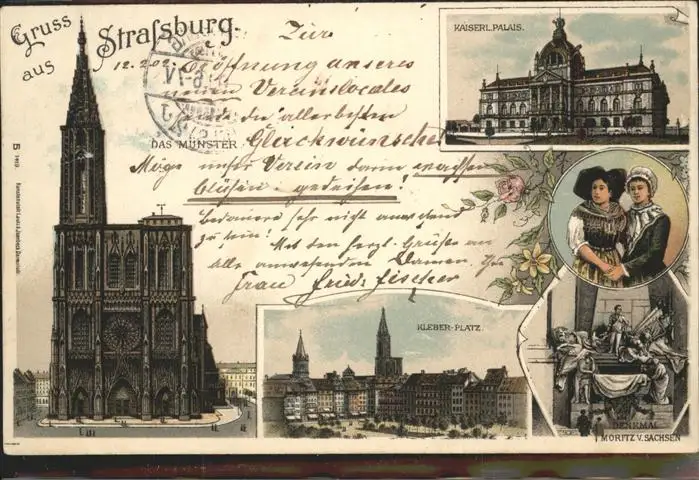 Gruss
aus
Strassburg.
12.2.02.
Zur
Eröffnung unseres
neuen Vereinslocales
sende die allerbesten
DAS MÜNSTER
Glückwünsche
Möge unser Verein darin wachsen
blühen u. gedeihen!
bedauere sehr nicht anwesend
zu sein! Mit den herzl. Grüßen an
alle anwesenden Damen. Ihre
Frau Fried. Fischer
KAISERL. PALAIS.
KLEBER-PLATZ.
DENKMAL
MORITZ V. SACHSEN